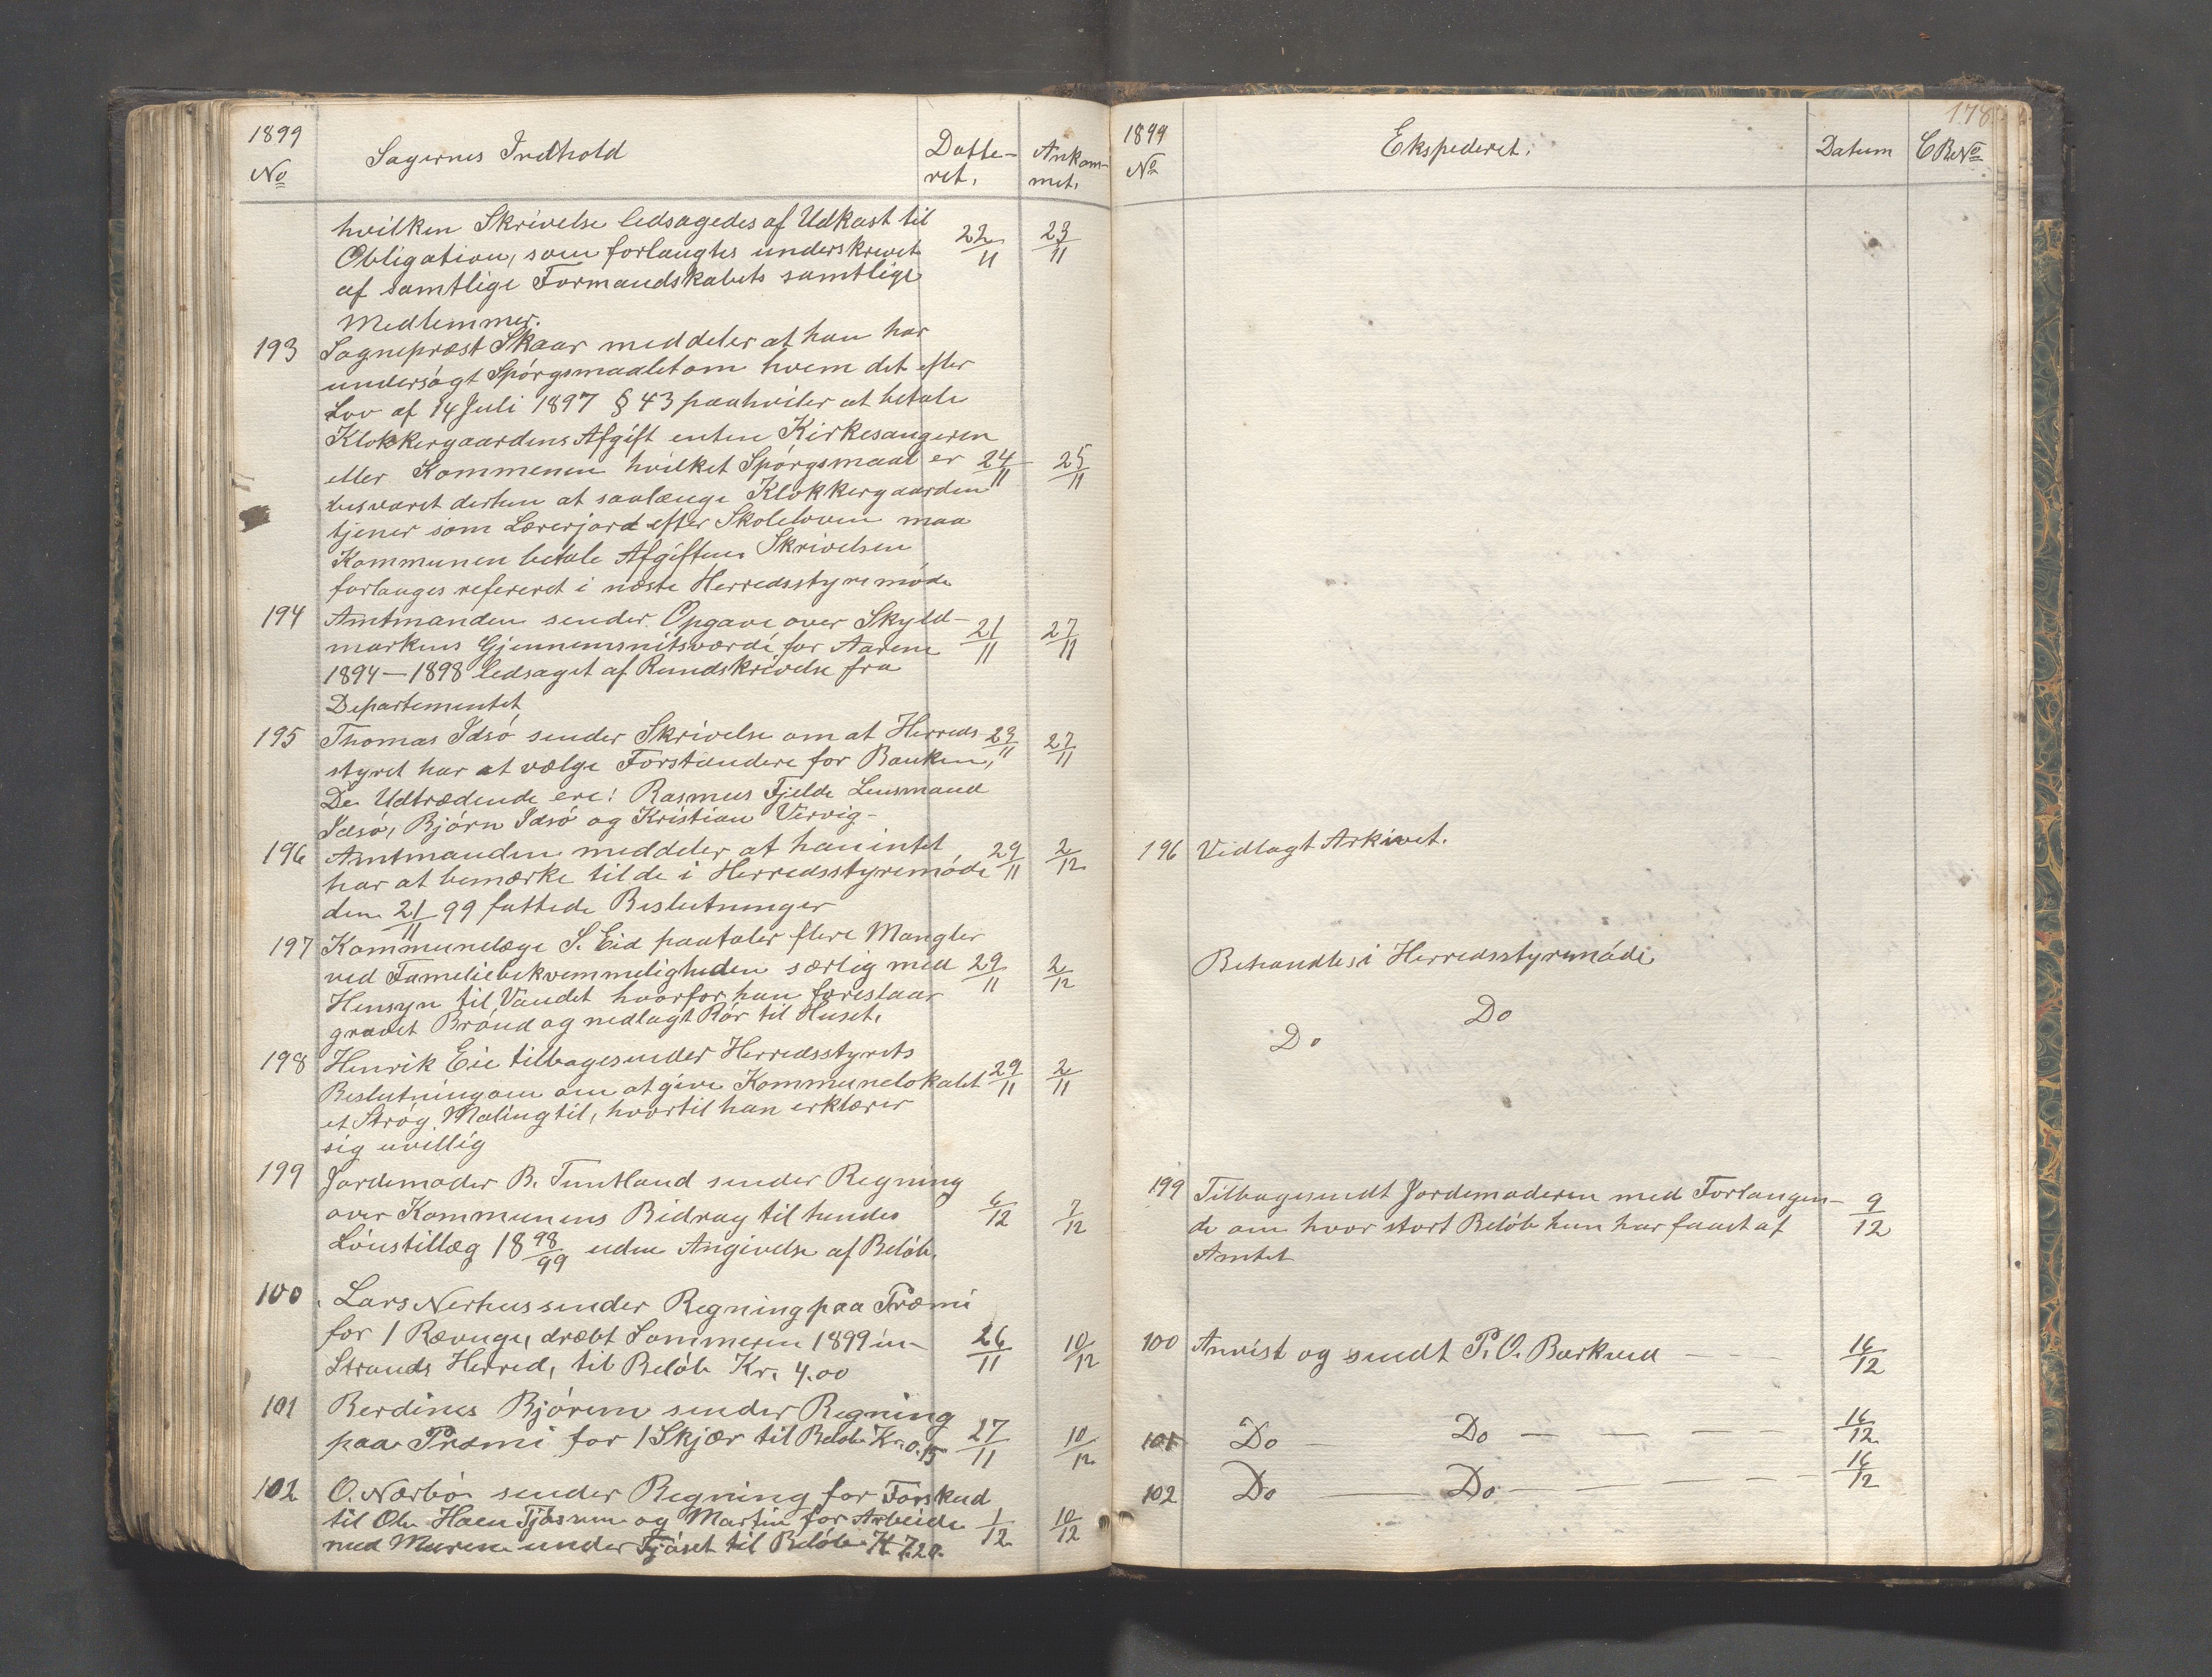 1899
No
Sagernes Indhold
Datte-
ret.
Ankom-
met.
hvilken Skrivelse ledsagedes af Udkast til
Obligation, som forlangtes underskrevet 22/11 23/11
af samtlige Formandskabets samtlige
Medlemmer.
193 Sognepræst Skaar meddeler at han har
undersøgt Spørgsmaalet om hvem det efter
Lov af 14 Juli 1897 § 43 paahviler at betale
Klokkergaardens Afgift enten Kirkesangeren
eller Kommenen hvilket Spørgsmaal er 24/11 25/11
besvaret derten at saalænge Klokkergaarden
tjener som Lærerjord efter Skoleloven maa
Kommunen betale Afgiften. Skrivelsen
forlanges refereret i næste Herredsstyremøde
194 Amtmanden sender Opgave over Skyld-
markens Gjennemsnitsværdi for Aarene 21/11 27/11
1894-1898 ledsaget af Rundskrivelse fra
Departementet
195 Thomas Idsø sender Skrivelse om at Herreds 23/11 27/11
styret har at vælge Forstandere for Banken,
De Udtrædende ere: Rasmus Fjelde Lensmand
Idsø, Bjørn Idsø og Kristian Vervig-
196 Amtmanden meddeler at han intet 29/11 2/12
har at bemærke til de i Herredsstyremøde
den 21/11 99 fattede Beslutninger
197 Kommunelæge S. Eid paataler flere Mangler
ved Fameliebekvemmeligheden særlig med 29/11 2/12
Hensyn til Vandet hvorfor han foreslaar
gravet Brønd og nedlagt Rør til Huset.
198 Henrik Eie tilbagesender Herredsstyrets
Beslutning om om at give Kommunelokalet 29/11 2/11
et Strøg Maling til, hvortil han erklærer
sig uvillig
199 Jordemoder B. Tuntland sender Regning
over Kommunens Bidrag til hendes 6/12 7/12
Lønstillæg 18 98/99 uden Angivelse af Beløb.
100 Lars Nerhus sender Regning paa Præmi
for 1 Rævunge, dræbt Sommeren 1899 in- 26/11 10/12
Strands Herred, til Beløb Kr. 4.00
101 Berdines Bjørem sender Regning
paa Præmi for 1 Skjær til Beløb Kr. 0.15 27/11 10/12
102 O. Nærbø sender Regning for Forskud
til Ole Haen Tjøsrum og Martin for Arbeide 1/12 10/12
med Murene under Fjøset til Beløb K 7.20.
178
1899
No
Ekspederet.
Datum
C B No
196 Vidlagt Arkivet.
Behandles i Herredsstyremøde
Do
Do
199 Tilbagesendt Jordemoderen med Forlangen- 9/12
de om hvor stort Beløb hun har faaet af
Amtet
100 Anvist og sendt P. O. Barkved - - 16/12
101 Do - Do - - - - 16/12
102 Do - Do - - - - 16/12